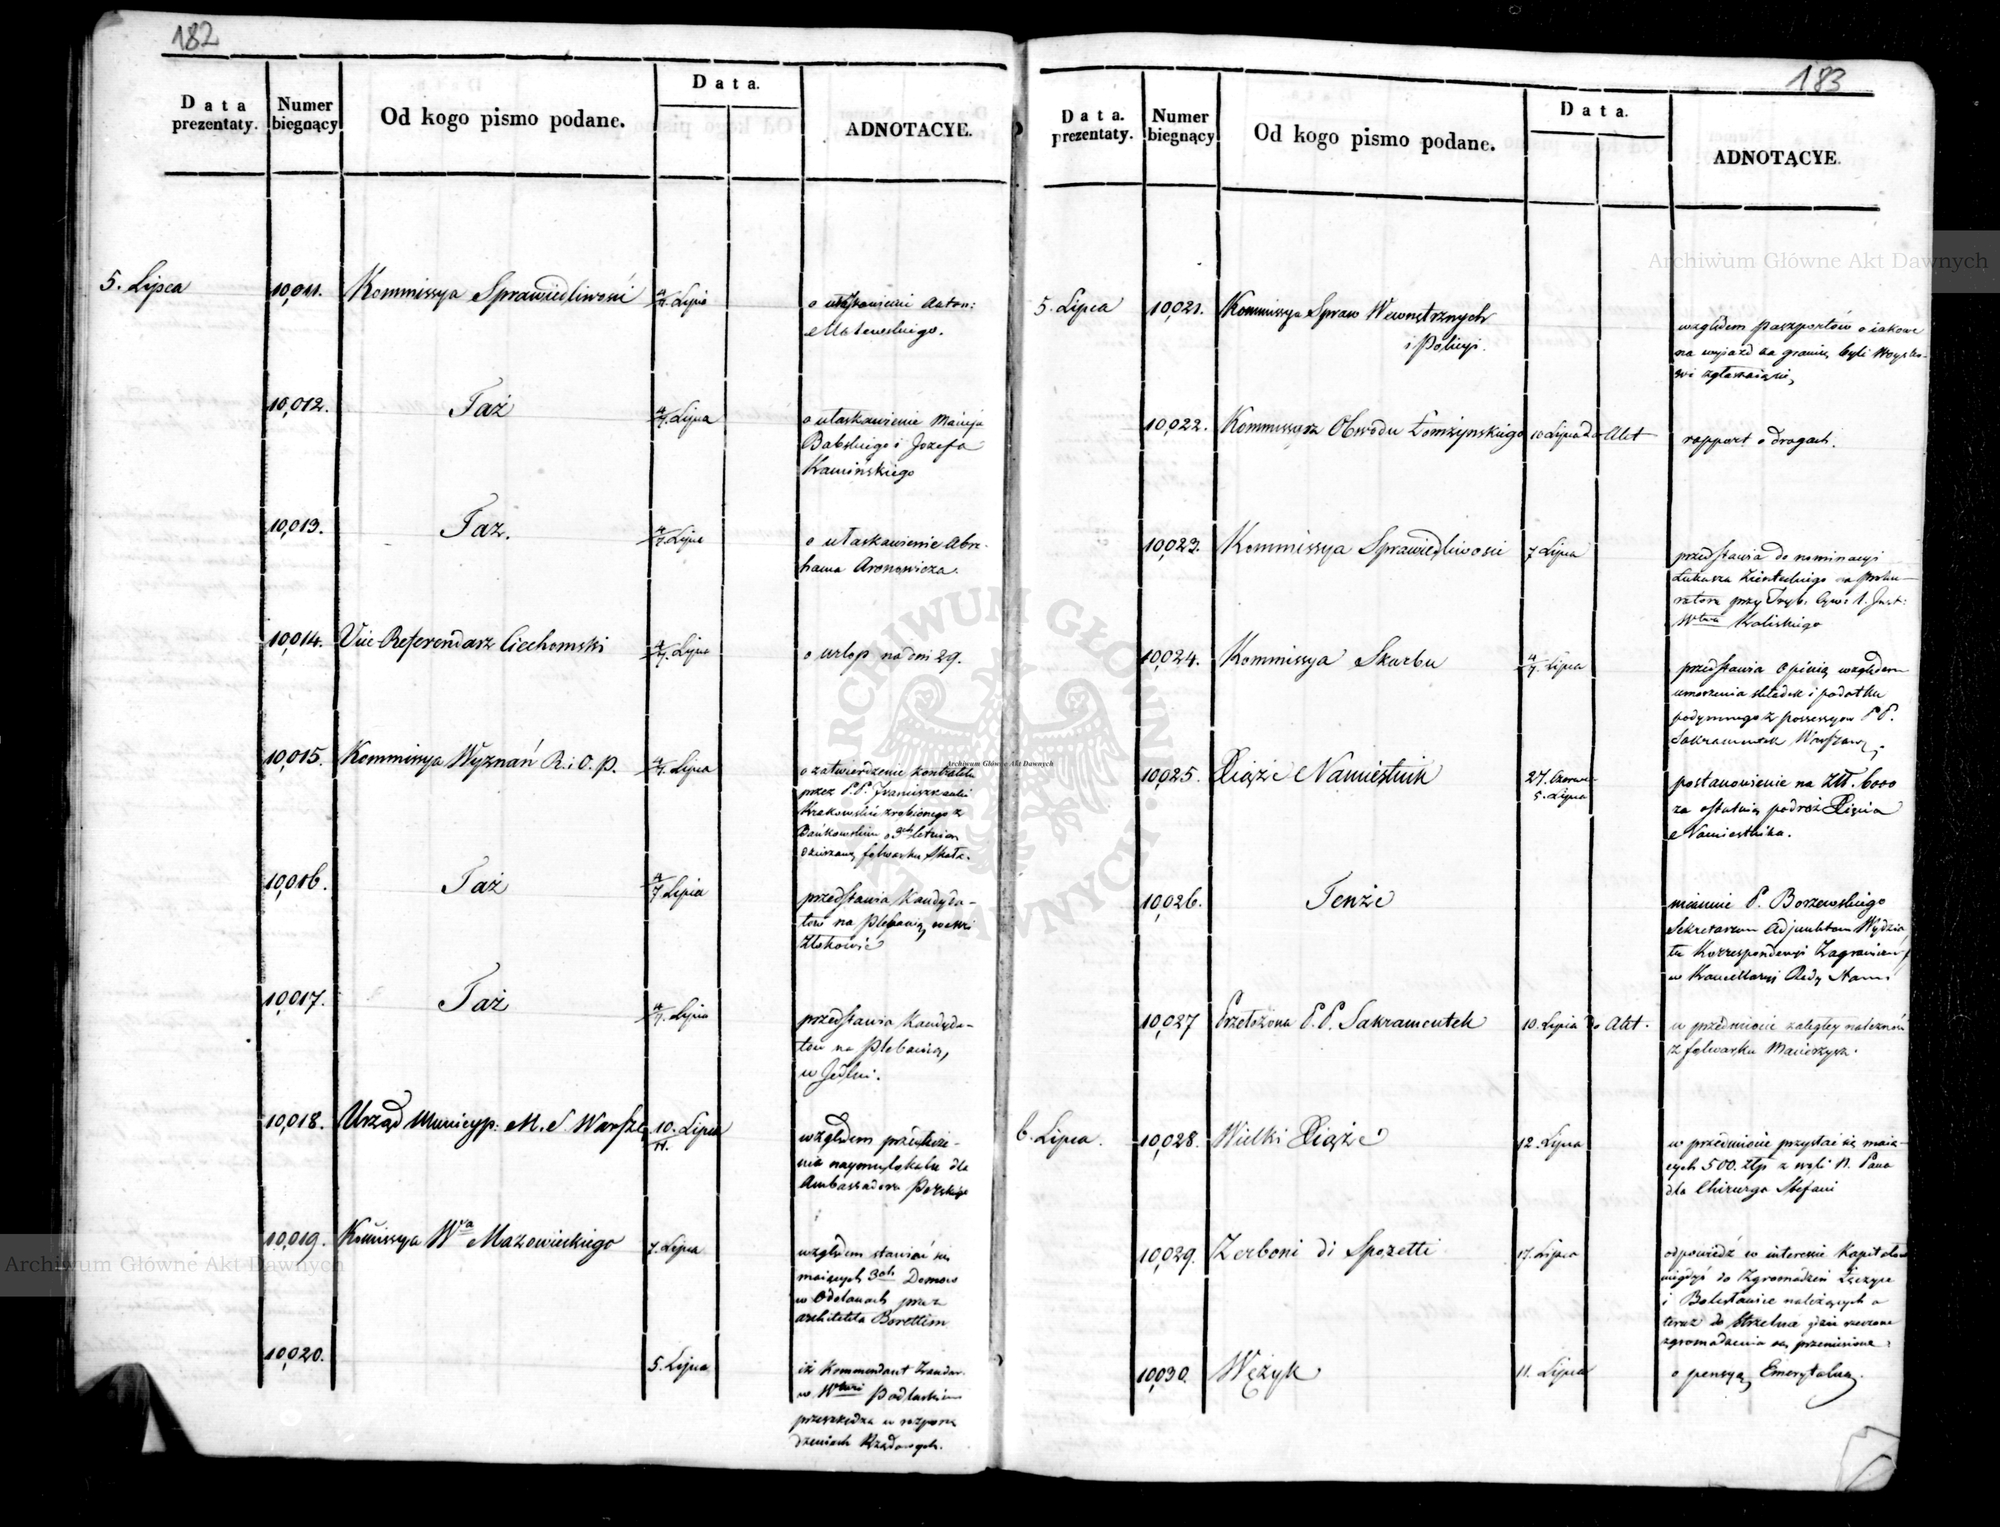 182
Data prezentaty.
Numer biegnący
Od kogo pismo podane.
Data.
ADNOTACYE.
5. Lipca
10,011.
Kommissya Sprawiedliwości
4/7. Lipca
o ułaskawienie Anton:
Malewskiego.
10,012.
Taż
4/7. Lipca
o ułaskawienie Macieja
Babskiego i Jozefa
Kamińskiego
10,013.
Taż.
4/7. Lipca
o ułaskawienie Abra-
hama Aronowicza.
10,014.
Vice-Referendarz Ciechomski
4/7. Lipca
o urlop na dni 29.
10,015.
Kommissya Wyznań R. i O. P.
4/7. Lipca
o zatwierdzenie kontraktu
przez P.P. Franciszkanki
Krakowskie zrobionego z
Bańkowskim o 3ch letnią
dzierzawę folwarku Skała.
10,016.
Taż
4/7 Lipca
przedstawia Kandyda-
tów na Plebanią, w wsi
10,017.
Taż
4/7. Lipca
przedstawia Kandyda-
tów na Plebanią,
w Jedlni.
10,018.
Urząd Municyp: M. S. Warsz.
10. Lipca
względem
nia naymu lokalu dla
Ambassadora Perskiego
10,019.
Kom̃issya Wwa Mazowieckiego
7. Lipca
względem stawiać się
maiących 3ch Domow
w przez
architekta Borettim
10,020.
5. Lipca
iż Kommendant Żandar.
w Wtwie Podlaskim
przeszkadza w rozporzą
dzeniach Rządowych.
183
Data. prezentaty.
Numer biegnący
Od kogo pismo podane.
Data.
ADNOTACYE.
5. Lipca
10,021.
Kommissya Spraw Wewnętrznych
i Policyi.
względem paszportów o iakowe
na wyiazd za granicę byli Woysko-
wi zgłaszaią się
10,022.
Kommissarz Obwodu Łomżynskiego
10 Lipca do Akt
rapport o drogach.
10,023.
Kommissya Sprawiedliwości
7 Lipca
przedstawia do nominacyi
Łukasza na Proku-
ratora przy Tryb. Cyw: 1. Inst:
Wtwa Kaliskiego
10,024.
Kommissya Skarbu
4/7. Lipca
przedstawia Opinią względem
umorzenia składek i podatku
podymnego z possessyow P.P.
Sakramentek Warszaw.
10,025.
Xiąże Namiestnik
27. Czerwca
5. Lipca
postanowienie na Złł. 6000
za ostatnią podroż Xięcia
Namiestnika.
10,026.
Tenże
mianuie P. Borzewskiego
Sekretarzem Adjunktem Wydzia
łu Korrespondencyi Zagranicznéj
w Kancellaryi Rady Nam:
10,027
Przełożona P.P. Sakramentek
10. Lipca do Akt.
w przedmiocie zaległey należności
z folwarku
6. Lipca.
10,028.
Wielki Xiąże
12. Lipca
w przedmiocie maią-
cych 500. złp z woli N. Pana
dla Chirurga Stefani
10,029.
Zerboni di Sposetti
17. Lipca
odpowiedź w interesie Kapitałow
niegdyś do Zgromadzeń Łęczyce
i Bolesławice należących a
teraz do Strzelna gdzie rzeczone
zgromadzenia są przeniesione.
10,030.
Wężyk
11. Lipca
o pensyą Emerytalną.
Archiwum Główne Akt Dawnych
Archiwum Główne Akt Dawnych
Archiwum Główne Akt Dawnych
ARCHIWUM GŁÓWNE AKT DAWNYCH